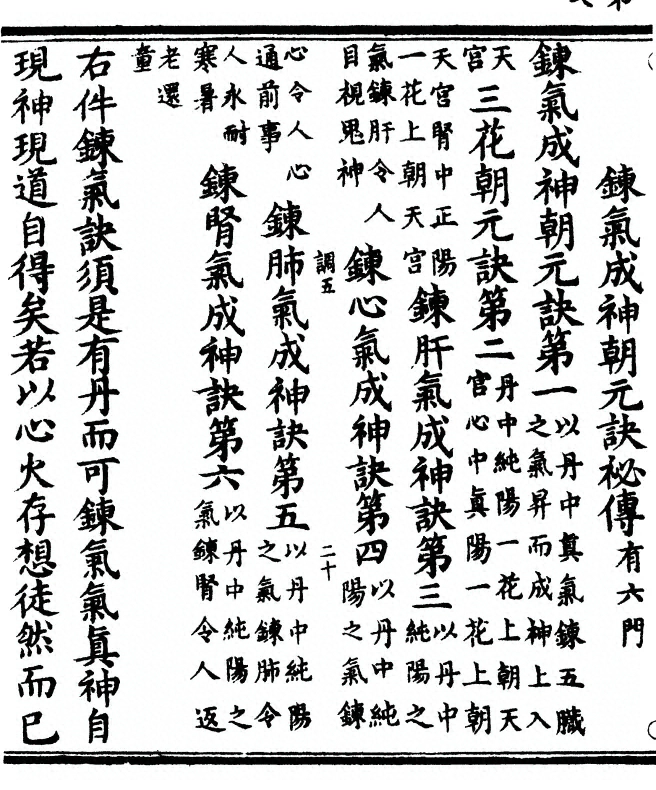 鍊氣成神朝元訣祕傳有六門
鍊氣成神朝元訣第一以丹中眞氣鍊五臟之氣昇而成神上入
天宮三花朝元訣第二丹中純陽一花上朝天宮心中眞陽一花上朝
天宮腎中正陽一花上朝天宮鍊肝氣成神訣第三以丹中純陽之
氣鍊肝令人目視鬼神鍊心氣成神訣第四以丹中純陽之氣鍊
調五 二十
心令人心通前事鍊肺氣成神訣第五以丹中純陽之氣鍊肺令
人永耐寒暑鍊腎氣成神訣第六以丹中純陽之氣鍊腎令人返
老還童
右件鍊氣訣須是有丹而可鍊氣氣眞神自
現神現道自得矣若以心火存想徒然而已